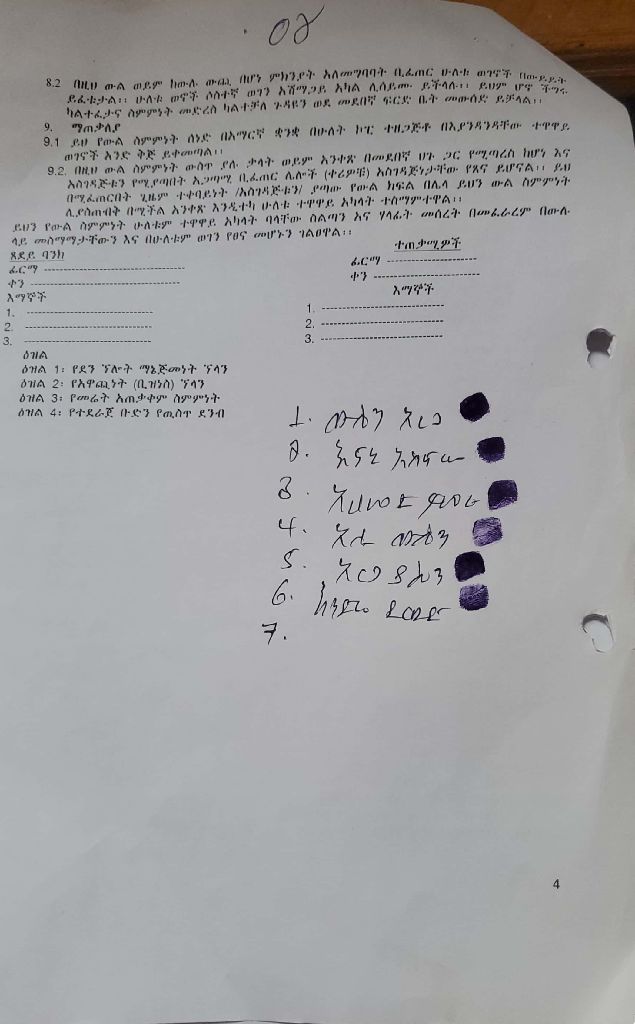 08
8.2 በዚህ ውል ወይም ከውሉ ውጪ በሆነ ምክንያት አለመግባባት ቢፈጠር ሁለቱ ወገኖች በውይይት
ይፈቱታል፡፡ ሁለቱ ወኖች ሶስተኛ ወገን አሸማጋይ አካል ሊሰይሙ ይችላሉ፡፡ ይህም ሆኖ ችግሩ
ካልተፈታና ስምምነት መድረስ ካልተቻለ ጉዳዩን ወደ መደበኛ ፍርድ ቤት መውሰድ ይቻላል፡፡
9. ማጠቃለያ
9.1 ይህ የውል ስምምነት ሰነድ በአማርኛ ቋንቋ በሁለት ኮፒ ተዘጋጅቶ በእያንዳንዳቸው ተዋዋይ
ወገኖች አንድ ቅጅ ይቀመጣል፡፡
9.2. በዚህ ውል ስምምነት ውስጥ ያሉ ቃላት ወይም አንቀጽ በመደበኛ ህጉ ጋር የሚጣረስ ከሆነ እና
አስገዳጅቱን የሚያጣበት አጋጣሚ ቢፈጠር ሌሎች (ቀሪዎቹ) አስገዳጅነታቸው የጸና ይሆናል፡፡ ይህ
በሚፈጠርበት ጊዜም ተቀባይነት /አስገዳጅቱን/ ያጣው የውል ክፍል በሌላ ይህን ውል ስምምነት
ሊያስጠብቅ በሚችል አንቀጽ እንዲተካ ሁለቱ ተዋዋይ አካላት ተስማምተዋል፡፡
ይህን የውል ስምምነት ሁለቱም ተዋዋይ አካላት ባላቸው ስልጣን እና ሃላፊት መሰረት በመፈራረም በውሉ
ላይ መስማማታቸውን እና በሁለቱም ወገን የፀና መሆኑን ገልፀዋል፡፡
ጸደይ ባንክ
ተጠቃሚዎች
ፊርማ ----------------------------
ፊርማ ------------------
ቀን ------------------------------
ቀን ---------------------
እማኞች
እማኞች
1. -------------------------
1. ------------------------
2. -------------------------
2. ------------------------
3. -------------------------
3. ------------------------
ዕዝል
ዕዝል 1፡ የደን ፕሎት ማኔጅመነት ፕላን
ዕዝል 2፡ የአዋጪነት (ቢዝነስ) ፕላን
ዕዝል 3፡ የመሬት አጠቃቀም ስምምነት
ዕዝል 4፡ የተደራጀ ቡድን የዉስጥ ደንብ
1.
2.
3. አህመድ
4. አሊ
5.
6.
7.
4